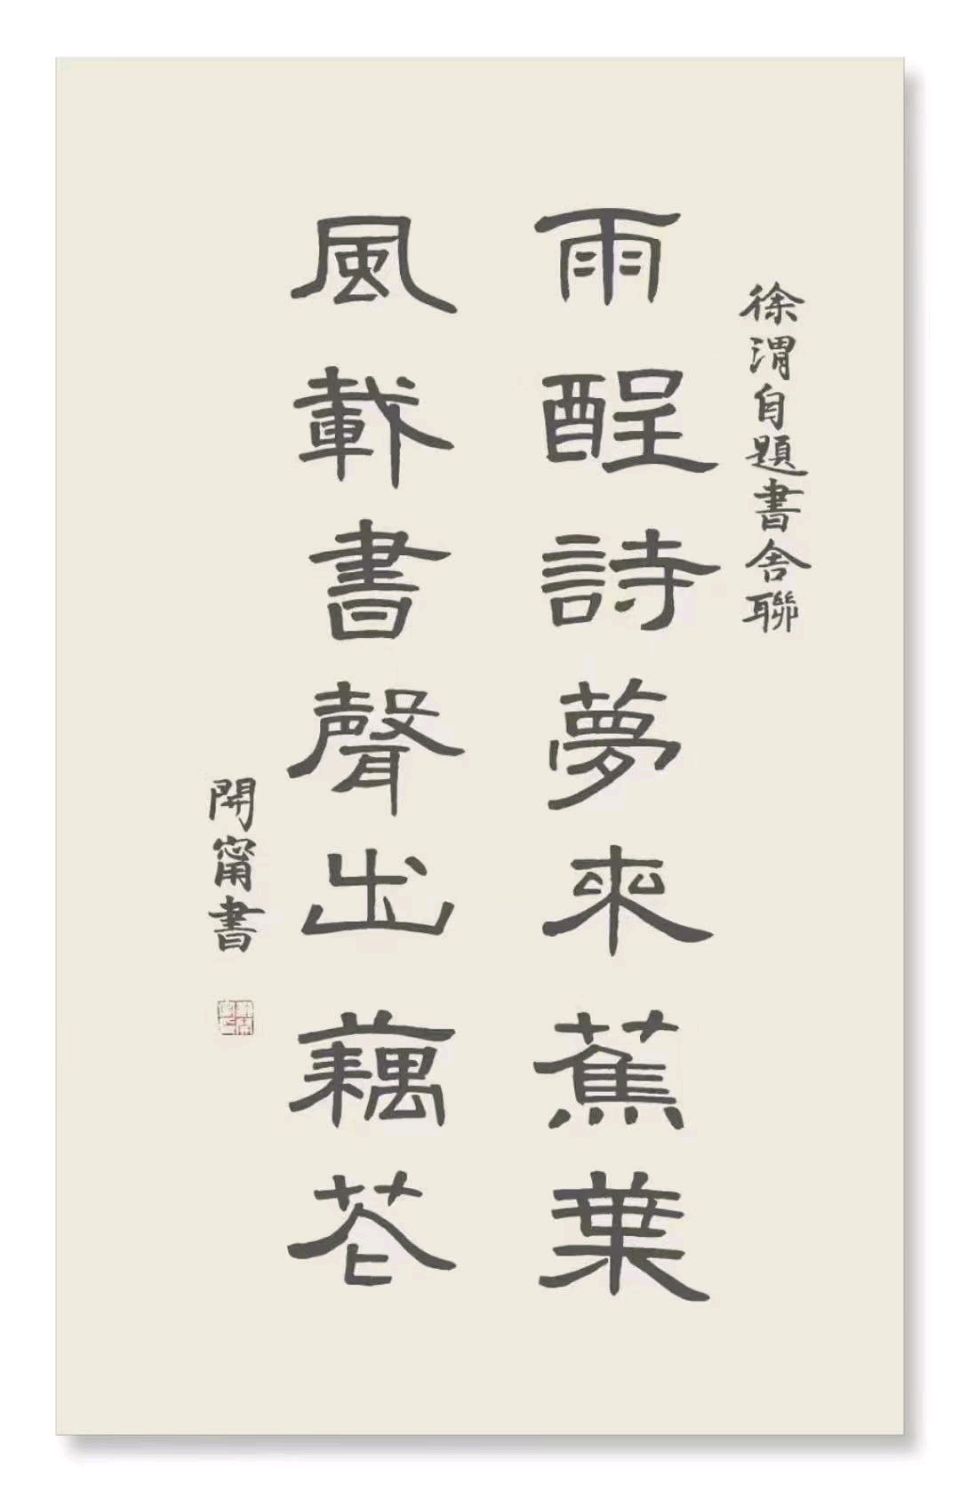 徐渭自題書舍聯
雨醒詩夢來蕉葉
風載書聲出藕花
開甯書